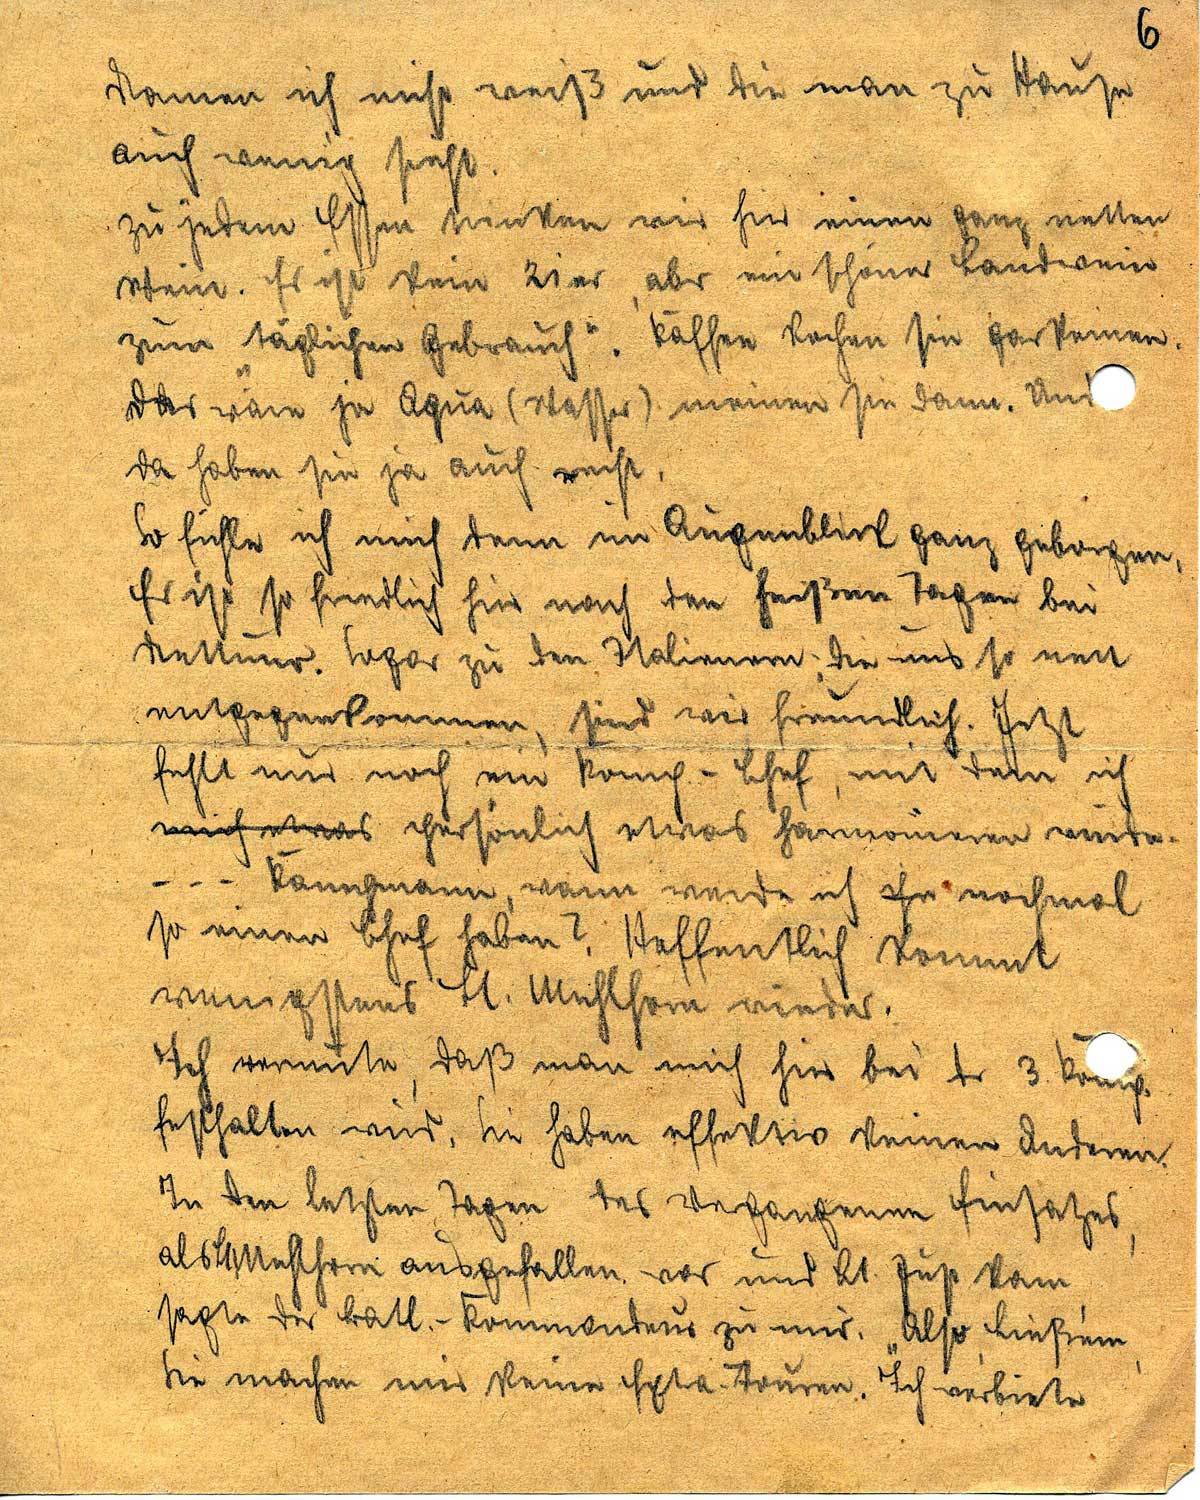 6
Namen ich nicht weiß und die man zu Hause
auch wenig sieht.
Zu jedem Essen trinken wir hier einen ganz netten
Wein. Es ist kein 21er, aber ein schöner Landwein
zum „täglichen Gebrauch“. Kaffee kochen sie gar keinen.
Das wäre ja Aqua (Wasser) meinen sie dann. Und
da haben sie ja auch recht.
So fühle ich mich denn im Augenblick ganz geborgen.
Es ist so friedlich hier nach den heißen Tagen bei
Nettuno. Sogar zu den Italienern, die uns so nett
entgegenkommen, sind wir freundlich. Jetzt
fehlt nur noch ein Komp.-Chef, mit dem ich
mich etwas persönlich etwas harmonieren würde.
--- wann werde ich nochmal
so einen Chef haben? Hoffentlich kommt
wenigstens Lt. Mehlhorn wieder.
Ich vermute, daß man mich hier bei der 3. Komp.
festhalten wird. Sie haben effektiv keinen Anderen.
In den letzten Tagen des vergangenen Einsatzes,
als Lt. Mehlhorn ausgefallen war und Lt. Just kam
sagte der Batl.-Kommandeur zu mir. „Also,
Sie machen mir keine Extra-Touren. Ich verbiete